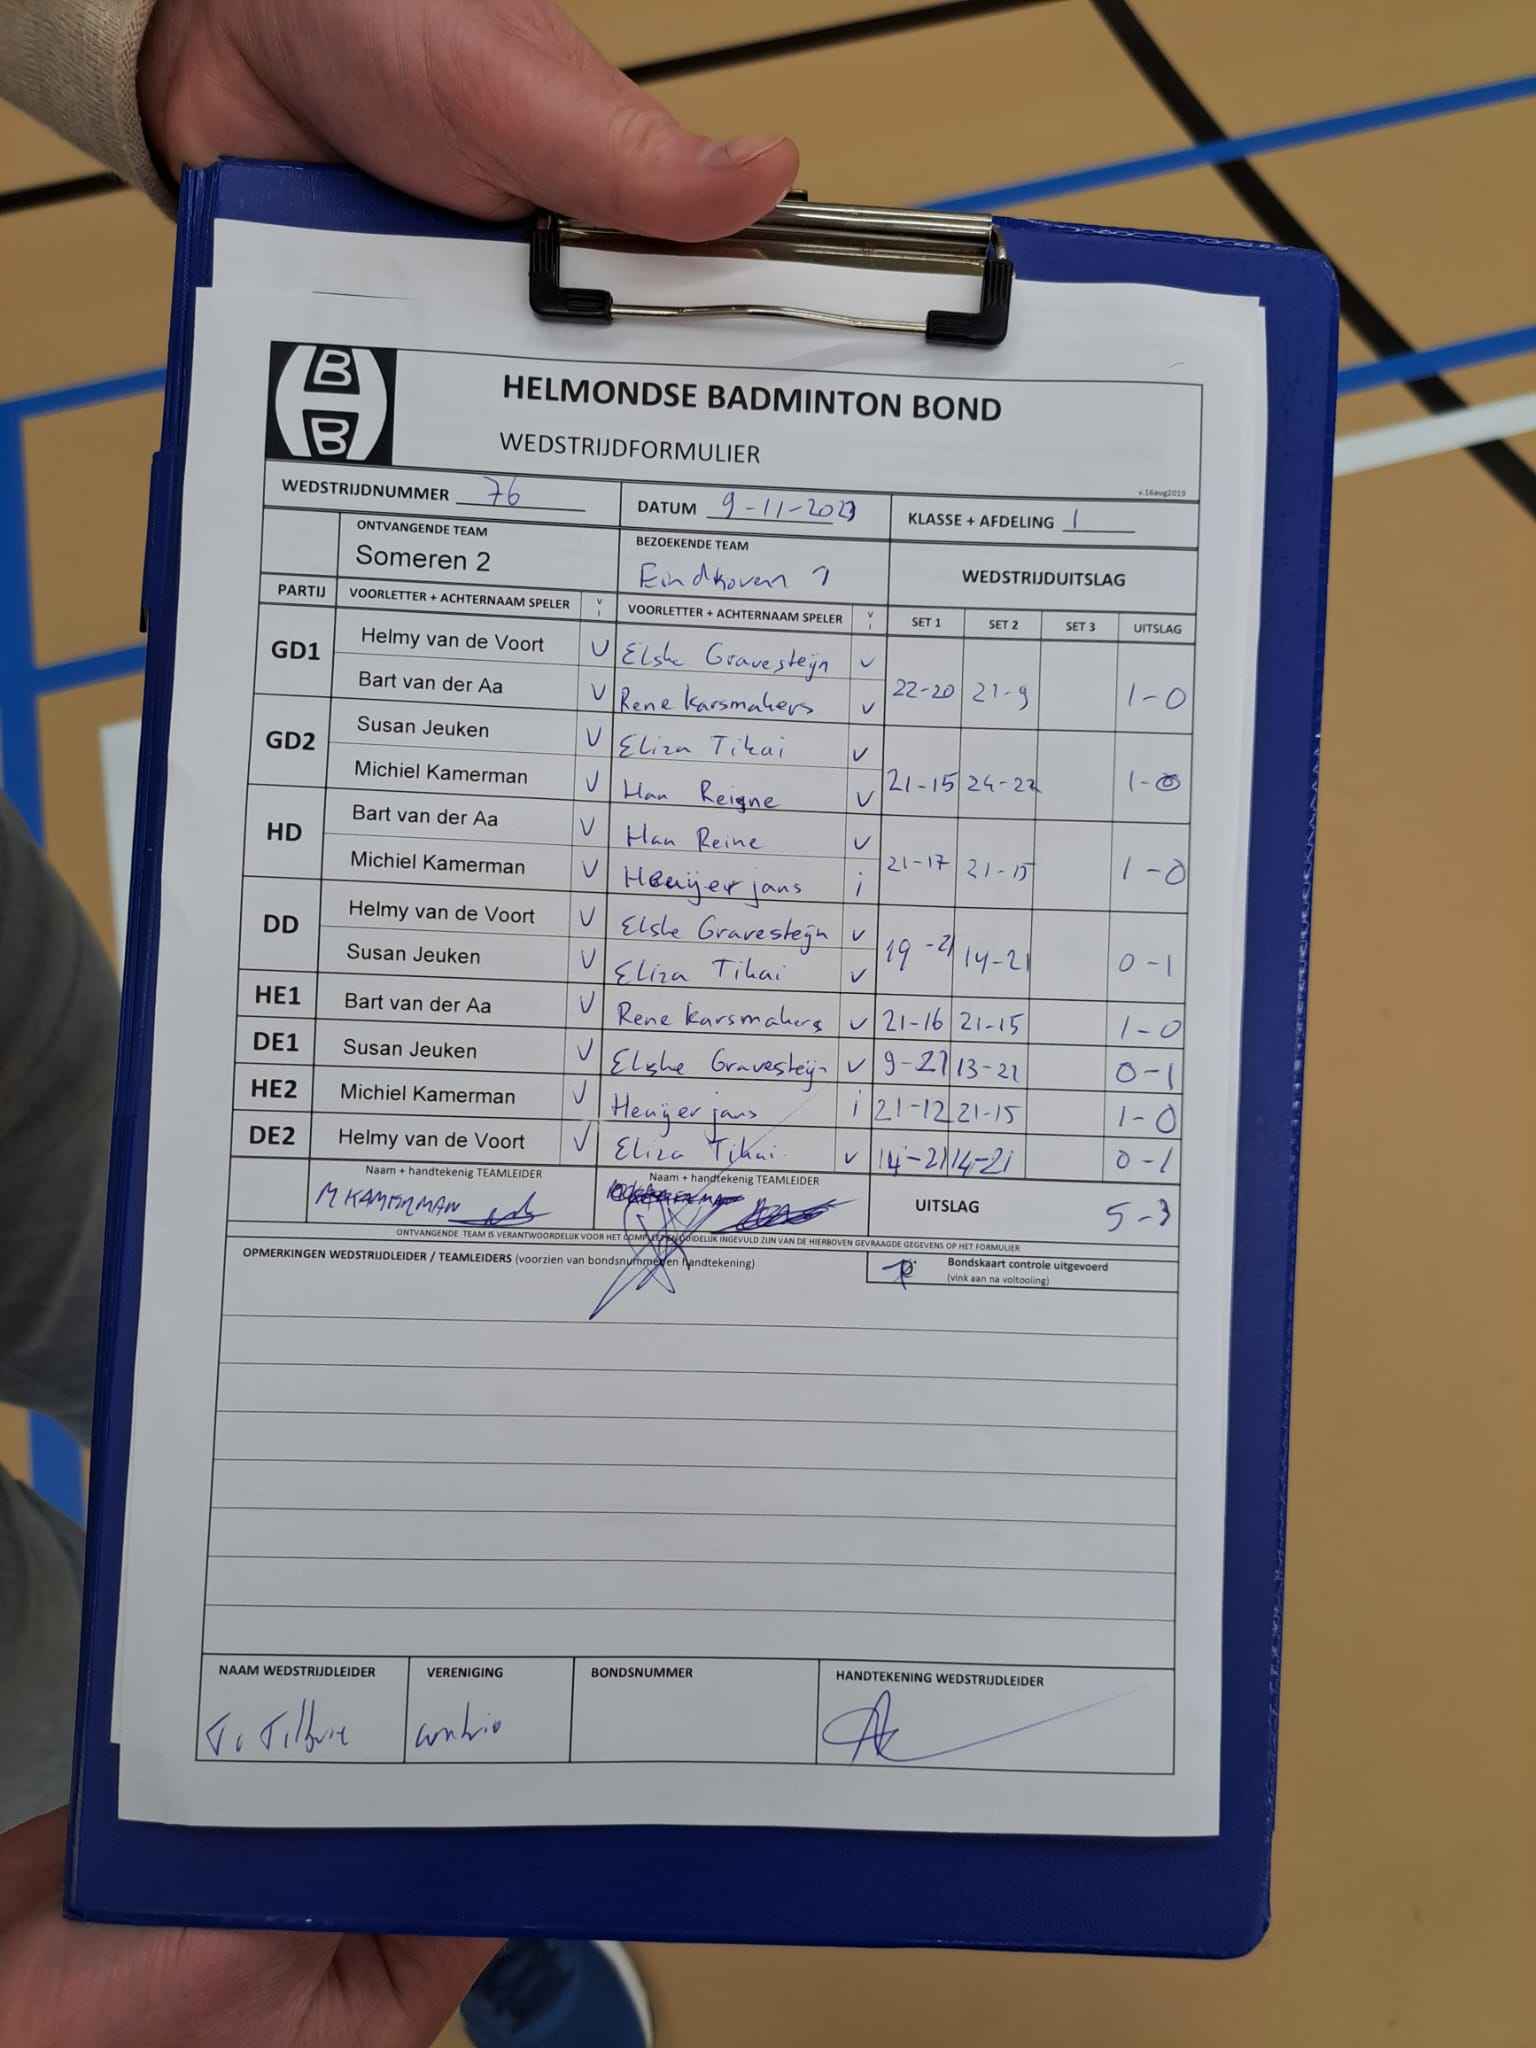 B
B
HELMONDSE BADMINTON BOND
WEDSTRIJDFORMULIER
v.16aug2019
WEDSTRIJDNUMMER 76 DATUM 9-11-2023 KLASSE + AFDELING 1
ONTVANGENDE TEAM BEZOEKENDE TEAM WEDSTRIJDUITSLAG
Someren 2 Eindhoven 1
PARTIJ VOORLETTER + ACHTERNAAM SPELER V I VOORLETTER + ACHTERNAAM SPELER V I SET 1 SET 2 SET 3 UITSLAG
GD1 Helmy van de Voort V Elske Gravesteijn v 22-20 21-9 1-0
Bart van der Aa V Rene Karsmakers v
GD2 Susan Jeuken V Eliza Tikai v 21-15 24-22 1-0
Michiel Kamerman V Han Reigne v
HD Bart van der Aa V Han Reine v 21-17 21-15 1-0
Michiel Kamerman V jans i
DD Helmy van de Voort V Elske Gravesteijn v 19-21 14-21 0-1
Susan Jeuken V Eliza Tikai v
HE1 Bart van der Aa V Rene Karsmakers v 21-16 21-15 1-0
DE1 Susan Jeuken V Elske Gravesteijn v 9-21 13-21 0-1
HE2 Michiel Kamerman V jans i 21-12 21-15 1-0
DE2 Helmy van de Voort V Eliza Tikai v 14-21 14-21 0-1
Naam + handtekenig TEAMLEIDER Naam + handtekenig TEAMLEIDER UITSLAG 5-3
M KAMERMAN
ONTVANGENDE TEAM IS VERANTWOORDELIJK VOOR HET COMPLEET EN DUIDELIJK INGEVULD ZIJN VAN DE HIERBOVEN GEVRAAGDE GEGEVENS OP HET FORMULIER
OPMERKINGEN WEDSTRIJDLEIDER / TEAMLEIDERS (voorzien van bondsnummer en handtekening)
Bondskaart controle uitgevoerd
(vink aan na voltooling)
NAAM WEDSTRIJDLEIDER VERENIGING BONDSNUMMER HANDTEKENING WEDSTRIJDLEIDER